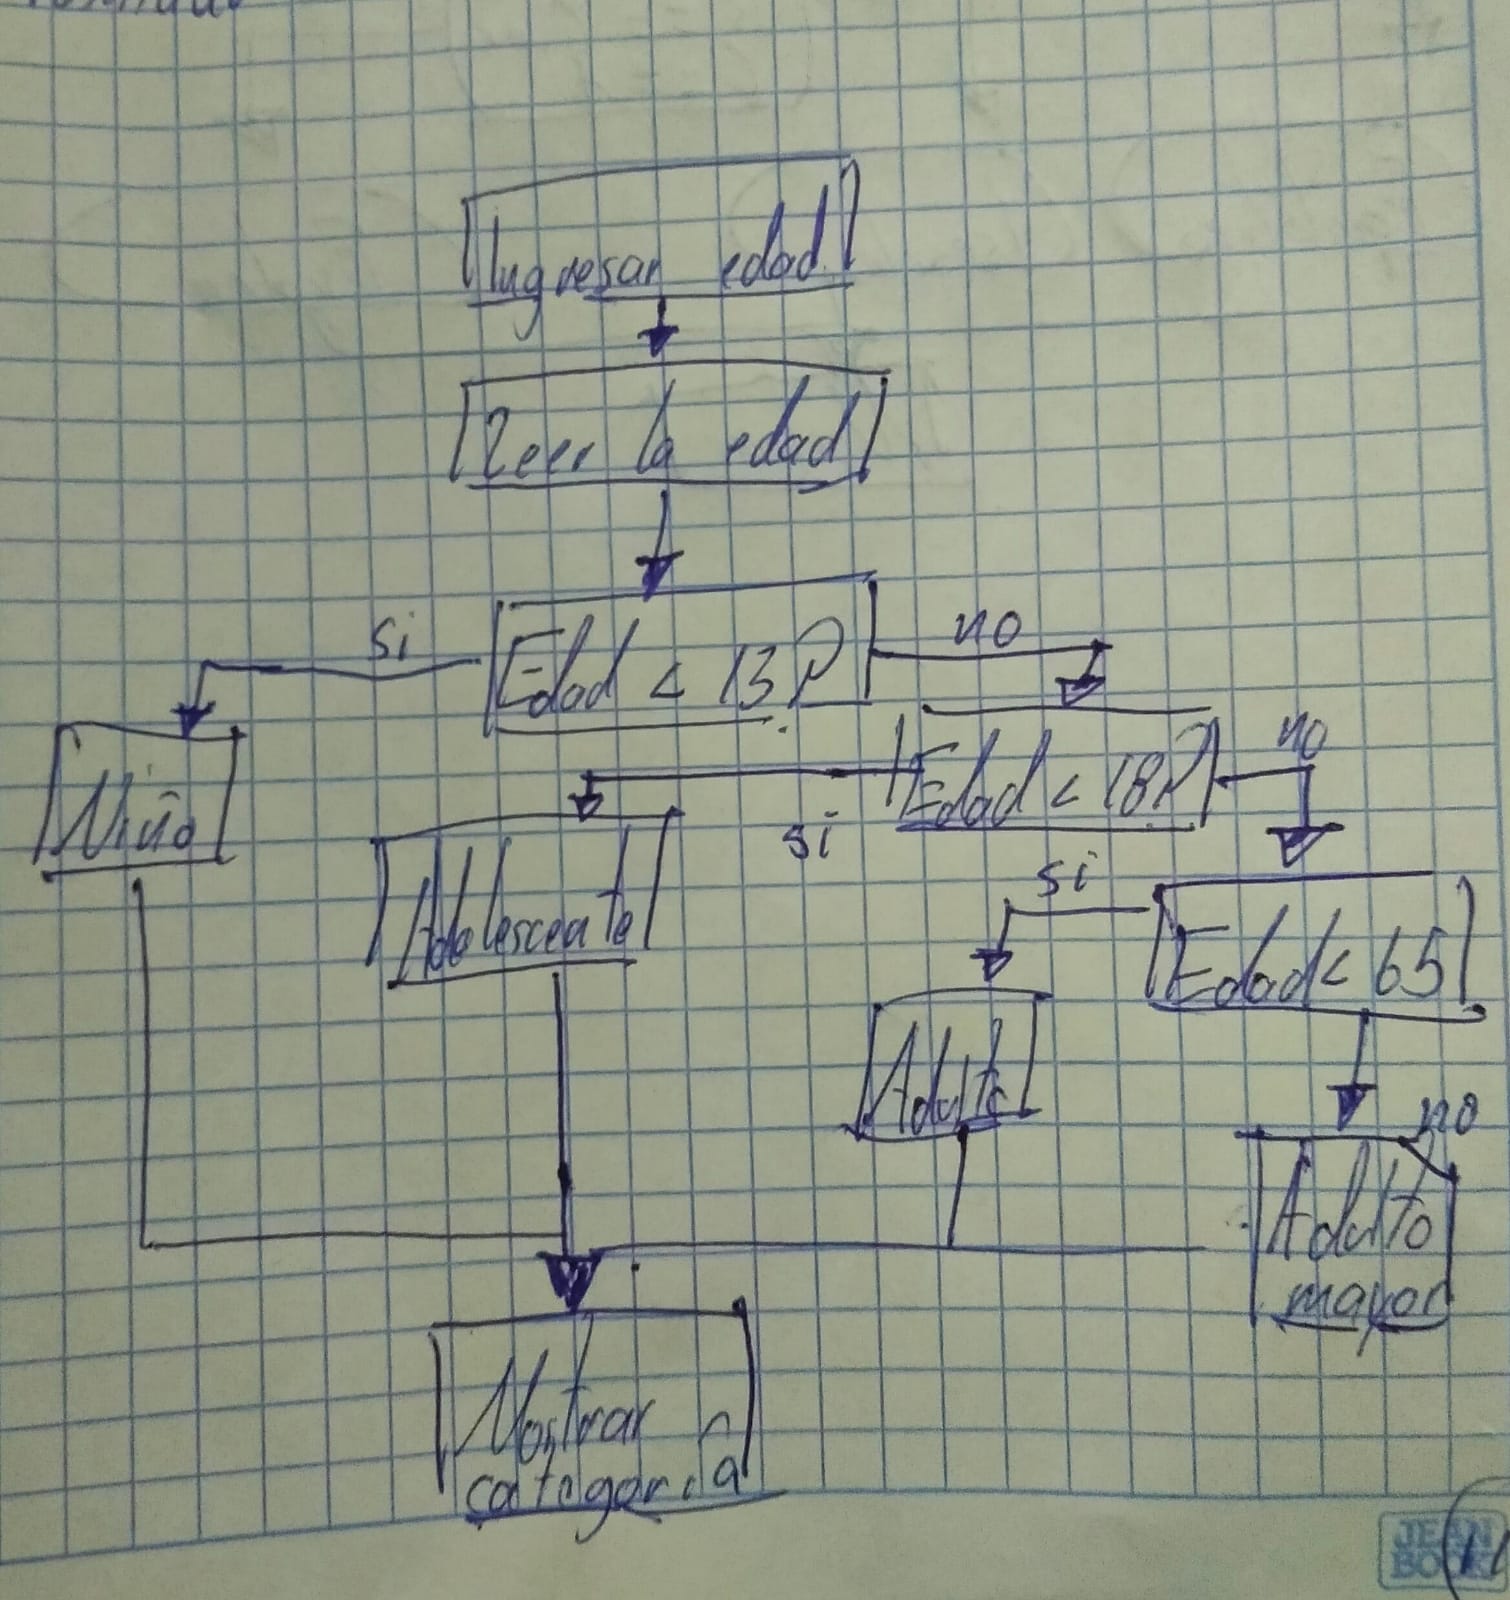 Ingresar edad.
Leer la edad
Edad < 13?
si
no
Niño
Edad < 18?
no
si
Adolescente
si
Edad < 65
Adulto
no
Adulto
mayor
Mostrar
categoría
JEAN
BOOK